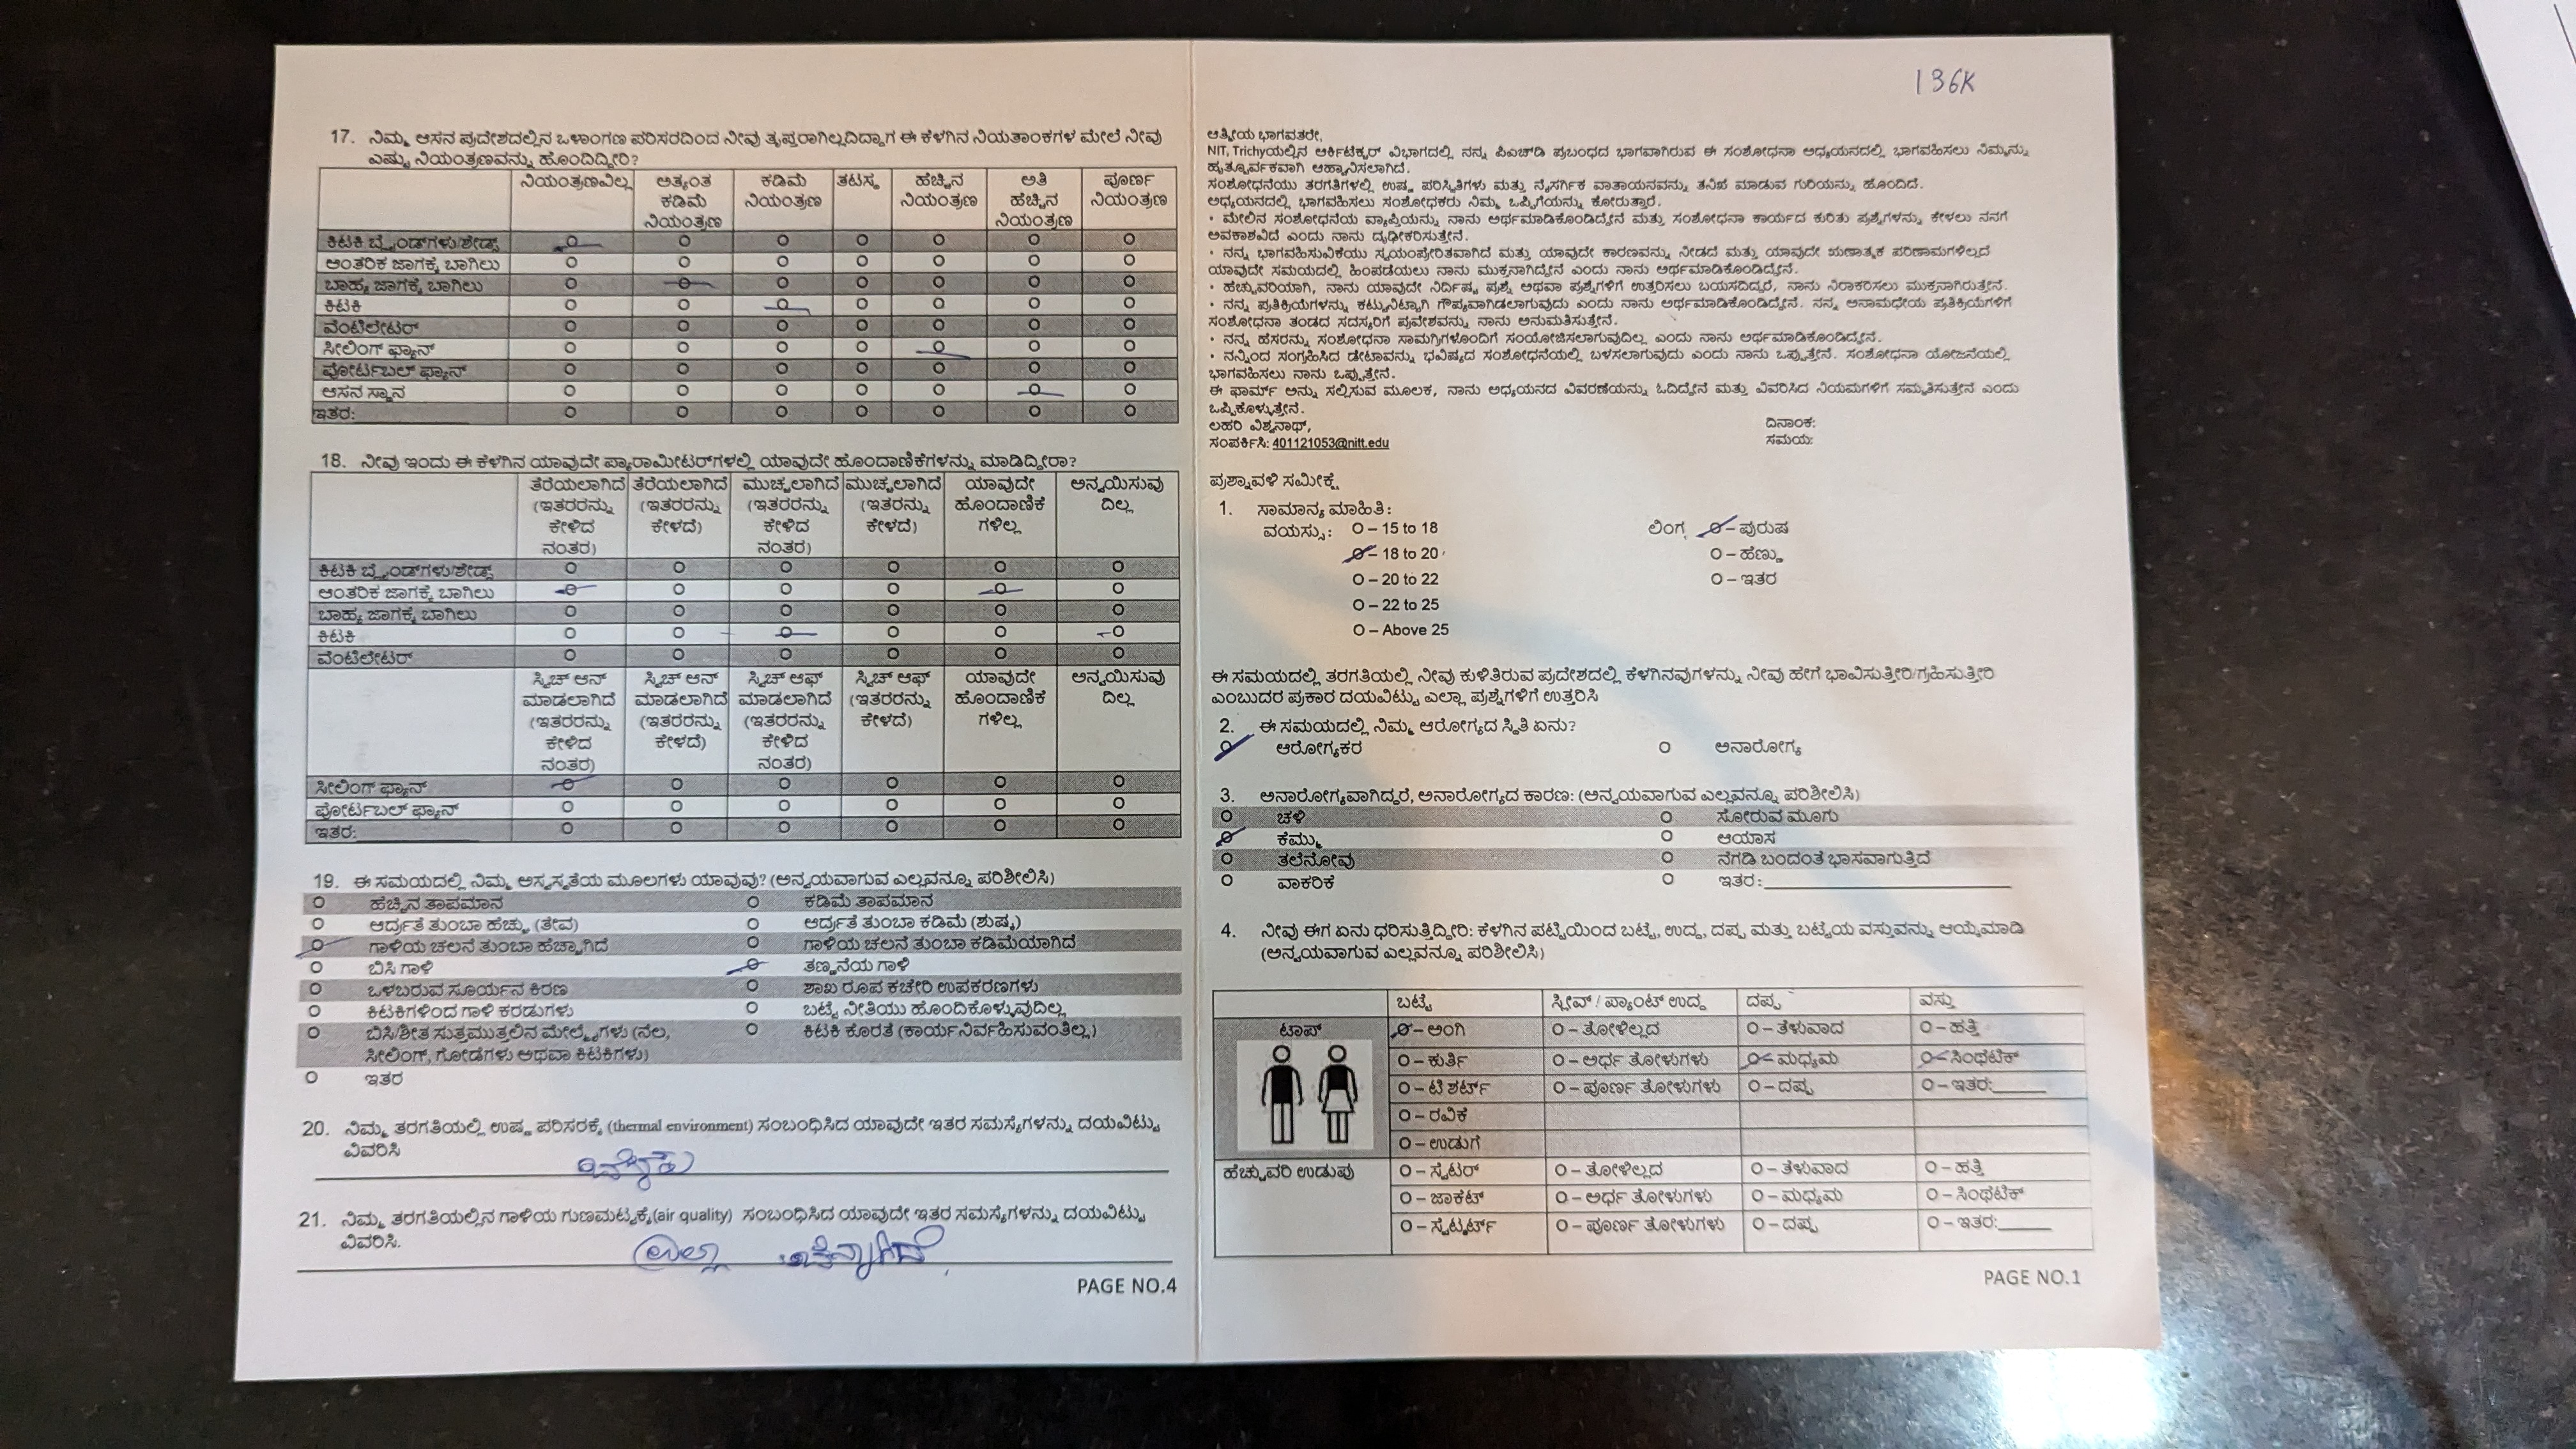 17. ನಿಮ್ಮ ಆಸನ ಪ್ರದೇಶದಲ್ಲಿನ ಒಳಾಂಗಣ ಪರಿಸರದಿಂದ ನೀವು ತೃಪ್ತರಾಗಿಲ್ಲದಿದ್ದಾಗ ಈ ಕೆಳಗಿನ ನಿಯತಾಂಕಗಳ ಮೇಲೆ ನೀವು
ಎಷ್ಟು ನಿಯಂತ್ರಣವನ್ನು ಹೊಂದಿದ್ದೀರಿ?
ನಿಯಂತ್ರಣವಿಲ್ಲ ಅತ್ಯಂತ ಕಡಿಮೆ ನಿಯಂತ್ರಣ ಕಡಿಮೆ ನಿಯಂತ್ರಣ ತಟಸ್ಥ ಹೆಚ್ಚಿನ ನಿಯಂತ್ರಣ ಅತಿ ಹೆಚ್ಚಿನ ನಿಯಂತ್ರಣ ಪೂರ್ಣ ನಿಯಂತ್ರಣ
ಕಿಟಕಿ ಬ್ಲೈಂಡ್‌ಗಳು/ಶೇಡ್ಸ್
ಆಂತರಿಕ ಜಾಗಕ್ಕೆ ಬಾಗಿಲು
ಬಾಹ್ಯ ಜಾಗಕ್ಕೆ ಬಾಗಿಲು
ಕಿಟಕಿ
ವೆಂಟಿಲೇಟರ್
ಸೀಲಿಂಗ್ ಫ್ಯಾನ್
ಪೋರ್ಟಬಲ್ ಫ್ಯಾನ್
ಆಸನ ಸ್ಥಾನ
ಇತರ:
18. ನೀವು ಇಂದು ಈ ಕೆಳಗಿನ ಯಾವುದೇ ಪ್ಯಾರಾಮೀಟರ್‌ಗಳಲ್ಲಿ ಯಾವುದೇ ಹೊಂದಾಣಿಕೆಗಳನ್ನು ಮಾಡಿದ್ದೀರಾ?
ತೆರೆಯಲಾಗಿದೆ (ಇತರರನ್ನು ಕೇಳಿದ ನಂತರ) ತೆರೆಯಲಾಗಿದೆ (ಇತರನ್ನು ಕೇಳದೆ) ಮುಚ್ಚಲಾಗಿದೆ (ಇತರರನ್ನು ಕೇಳಿದ ನಂತರ) ಮುಚ್ಚಲಾಗಿದೆ (ಇತರನ್ನು ಕೇಳದೆ) ಯಾವುದೇ ಹೊಂದಾಣಿಕೆ ಗಳಿಲ್ಲ ಅನ್ವಯಿಸುವು ದಿಲ್ಲ
ಕಿಟಕಿ ಬ್ಲೈಂಡ್‌ಗಳು/ಶೇಡ್ಸ್
ಆಂತರಿಕ ಜಾಗಕ್ಕೆ ಬಾಗಿಲು
ಬಾಹ್ಯ ಜಾಗಕ್ಕೆ ಬಾಗಿಲು
ಕಿಟಕಿ
ವೆಂಟಿಲೇಟರ್
ಸ್ವಿಚ್ ಆನ್ ಮಾಡಲಾಗಿದೆ (ಇತರರನ್ನು ಕೇಳಿದ ನಂತರ) ಸ್ವಿಚ್ ಆನ್ ಮಾಡಲಾಗಿದೆ (ಇತರರನ್ನು ಕೇಳದೆ) ಸ್ವಿಚ್ ಆಫ್ ಮಾಡಲಾಗಿದೆ (ಇತರರನ್ನು ಕೇಳಿದ ನಂತರ) ಸ್ವಿಚ್ ಆಫ್ (ಇತರರನ್ನು ಕೇಳದೆ) ಯಾವುದೇ ಹೊಂದಾಣಿಕೆ ಗಳಿಲ್ಲ ಅನ್ವಯಿಸುವು ದಿಲ್ಲ
ಸೀಲಿಂಗ್ ಫ್ಯಾನ್
ಪೋರ್ಟಬಲ್ ಫ್ಯಾನ್
ಇತರ:
19. ಈ ಸಮಯದಲ್ಲಿ ನಿಮ್ಮ ಅಸ್ವಸ್ಥತೆಯ ಮೂಲಗಳು ಯಾವುವು? (ಅನ್ವಯವಾಗುವ ಎಲ್ಲವನ್ನೂ ಪರಿಶೀಲಿಸಿ)
ಹೆಚ್ಚಿನ ತಾಪಮಾನ ಕಡಿಮೆ ತಾಪಮಾನ
ಆರ್ದ್ರತೆ ತುಂಬಾ ಹೆಚ್ಚು (ತೇವ) ಆರ್ದ್ರತೆ ತುಂಬಾ ಕಡಿಮೆ (ಶುಷ್ಕ)
ಗಾಳಿಯ ಚಲನೆ ತುಂಬಾ ಹೆಚ್ಚಾಗಿದೆ ಗಾಳಿಯ ಚಲನೆ ತುಂಬಾ ಕಡಿಮೆಯಾಗಿದೆ
ಬಿಸಿ ಗಾಳಿ ತಣ್ಣನೆಯ ಗಾಳಿ
ಒಳಬರುವ ಸೂರ್ಯನ ಕಿರಣ ಶಾಖ ರೂಪ ಕಚೇರಿ ಉಪಕರಣಗಳು
ಕಿಟಕಿಗಳಿಂದ ಗಾಳಿ ಕರಡುಗಳು ಬಟ್ಟೆ ನೀತಿಯು ಹೊಂದಿಕೊಳ್ಳುವುದಿಲ್ಲ
ಬಿಸಿ/ಶೀತ ಸುತ್ತಮುತ್ತಲಿನ ಮೇಲ್ಮೈಗಳು (ನೆಲ, ಕಿಟಕಿ ಕೊರತೆ (ಕಾರ್ಯನಿರ್ವಹಿಸುವಂತಿಲ್ಲ)
ಸೀಲಿಂಗ್, ಗೋಡೆಗಳು ಅಥವಾ ಕಿಟಕಿಗಳು)
ಇತರ
20. ನಿಮ್ಮ ತರಗತಿಯಲ್ಲಿ ಉಷ್ಣ ಪರಿಸರಕ್ಕೆ (thermal environment) ಸಂಬಂಧಿಸಿದ ಯಾವುದೇ ಇತರ ಸಮಸ್ಯೆಗಳನ್ನು ದಯವಿಟ್ಟು
ವಿವರಿಸಿ
21. ನಿಮ್ಮ ತರಗತಿಯಲ್ಲಿನ ಗಾಳಿಯ ಗುಣಮಟ್ಟಕ್ಕೆ(air quality) ಸಂಬಂಧಿಸಿದ ಯಾವುದೇ ಇತರ ಸಮಸ್ಯೆಗಳನ್ನು ದಯವಿಟ್ಟು
ವಿವರಿಸಿ.
PAGE NO.4
136K
ಆತ್ಮೀಯ ಭಾಗವತರೇ,
NIT, Trichyಯಲ್ಲಿನ ಆರ್ಕಿಟೆಕ್ಚರ್ ವಿಭಾಗದಲ್ಲಿ ನನ್ನ ಪಿಎಚ್‌ಡಿ ಪ್ರಬಂಧದ ಭಾಗವಾಗಿರುವ ಈ ಸಂಶೋಧನಾ ಅಧ್ಯಯನದಲ್ಲಿ ಭಾಗವಹಿಸಲು ನಿಮ್ಮನ್ನು
ಹೃತ್ಪೂರ್ವಕವಾಗಿ ಆಹ್ವಾನಿಸಲಾಗಿದೆ.
ಸಂಶೋಧನೆಯು ತರಗತಿಗಳಲ್ಲಿ ಉಷ್ಣ ಪರಿಸ್ಥಿತಿಗಳು ಮತ್ತು ನೈಸರ್ಗಿಕ ವಾತಾಯನವನ್ನು ತನಿಖೆ ಮಾಡುವ ಗುರಿಯನ್ನು ಹೊಂದಿದೆ.
ಅಧ್ಯಯನದಲ್ಲಿ ಭಾಗವಹಿಸಲು ಸಂಶೋಧಕರು ನಿಮ್ಮ ಒಪ್ಪಿಗೆಯನ್ನು ಕೋರುತ್ತಾರೆ.
• ಮೇಲಿನ ಸಂಶೋಧನೆಯ ವ್ಯಾಪ್ತಿಯನ್ನು ನಾನು ಅರ್ಥಮಾಡಿಕೊಂಡಿದ್ದೇನೆ ಮತ್ತು ಸಂಶೋಧನಾ ಕಾರ್ಯದ ಕುರಿತು ಪ್ರಶ್ನೆಗಳನ್ನು ಕೇಳಲು ನನಗೆ
ಅವಕಾಶವಿದೆ ಎಂದು ನಾನು ದೃಢೀಕರಿಸುತ್ತೇನೆ.
• ನನ್ನ ಭಾಗವಹಿಸುವಿಕೆಯು ಸ್ವಯಂಪ್ರೇರಿತವಾಗಿದೆ ಮತ್ತು ಯಾವುದೇ ಕಾರಣವನ್ನು ನೀಡದೆ ಮತ್ತು ಯಾವುದೇ ಋಣಾತ್ಮಕ ಪರಿಣಾಮಗಳಿಲ್ಲದೆ
ಯಾವುದೇ ಸಮಯದಲ್ಲಿ ಹಿಂಪಡೆಯಲು ನಾನು ಮುಕ್ತನಾಗಿದ್ದೇನೆ ಎಂದು ನಾನು ಅರ್ಥಮಾಡಿಕೊಂಡಿದ್ದೇನೆ.
• ಹೆಚ್ಚುವರಿಯಾಗಿ, ನಾನು ಯಾವುದೇ ನಿರ್ದಿಷ್ಟ ಪ್ರಶ್ನೆ ಅಥವಾ ಪ್ರಶ್ನೆಗಳಿಗೆ ಉತ್ತರಿಸಲು ಬಯಸದಿದ್ದರೆ, ನಾನು ನಿರಾಕರಿಸಲು ಮುಕ್ತನಾಗಿರುತ್ತೇನೆ.
• ನನ್ನ ಪ್ರತಿಕ್ರಿಯೆಗಳನ್ನು ಕಟ್ಟುನಿಟ್ಟಾಗಿ ಗೌಪ್ಯವಾಗಿಡಲಾಗುವುದು ಎಂದು ನಾನು ಅರ್ಥಮಾಡಿಕೊಂಡಿದ್ದೇನೆ. ನನ್ನ ಅನಾಮಧೇಯ ಪ್ರತಿಕ್ರಿಯೆಗಳಿಗೆ
ಸಂಶೋಧನಾ ತಂಡದ ಸದಸ್ಯರಿಗೆ ಪ್ರವೇಶವನ್ನು ನಾನು ಅನುಮತಿಸುತ್ತೇನೆ.
• ನನ್ನ ಹೆಸರನ್ನು ಸಂಶೋಧನಾ ಸಾಮಗ್ರಿಗಳೊಂದಿಗೆ ಸಂಯೋಜಿಸಲಾಗುವುದಿಲ್ಲ ಎಂದು ನಾನು ಅರ್ಥಮಾಡಿಕೊಂಡಿದ್ದೇನೆ.
• ನನ್ನಿಂದ ಸಂಗ್ರಹಿಸಿದ ಡೇಟಾವನ್ನು ಭವಿಷ್ಯದ ಸಂಶೋಧನೆಯಲ್ಲಿ ಬಳಸಲಾಗುವುದು ಎಂದು ನಾನು ಒಪ್ಪುತ್ತೇನೆ. ಸಂಶೋಧನಾ ಯೋಜನೆಯಲ್ಲಿ
ಭಾಗವಹಿಸಲು ನಾನು ಒಪ್ಪುತ್ತೇನೆ.
ಈ ಫಾರ್ಮ್ ಅನ್ನು ಸಲ್ಲಿಸುವ ಮೂಲಕ, ನಾನು ಅಧ್ಯಯನದ ವಿವರಣೆಯನ್ನು ಓದಿದ್ದೇನೆ ಮತ್ತು ವಿವರಿಸಿದ ನಿಯಮಗಳಿಗೆ ಸಮ್ಮತಿಸುತ್ತೇನೆ ಎಂದು
ಒಪ್ಪಿಕೊಳ್ಳುತ್ತೇನೆ.
ಲಹರಿ ವಿಶ್ವನಾಥ್, ದಿನಾಂಕ:
ಸಂಪರ್ಕಿಸಿ: 401121053@nitt.edu ಸಮಯ:
ಪ್ರಶ್ನಾವಳಿ ಸಮೀಕ್ಷೆ
1. ಸಾಮಾನ್ಯ ಮಾಹಿತಿ:
ವಯಸ್ಸು: O – 15 to 18 ಲಿಂಗ O – ಪುರುಷ
O – 18 to 20 O – ಹೆಣ್ಣು
O – 20 to 22 O – ಇತರ
O – 22 to 25
O – Above 25
ಈ ಸಮಯದಲ್ಲಿ ತರಗತಿಯಲ್ಲಿ ನೀವು ಕುಳಿತಿರುವ ಪ್ರದೇಶದಲ್ಲಿ ಕೆಳಗಿನವುಗಳನ್ನು ನೀವು ಹೇಗೆ ಭಾವಿಸುತ್ತೀರಿ/ಗ್ರಹಿಸುತ್ತೀರಿ
ಎಂಬುದರ ಪ್ರಕಾರ ದಯವಿಟ್ಟು ಎಲ್ಲಾ ಪ್ರಶ್ನೆಗಳಿಗೆ ಉತ್ತರಿಸಿ
2. ಈ ಸಮಯದಲ್ಲಿ ನಿಮ್ಮ ಆರೋಗ್ಯದ ಸ್ಥಿತಿ ಏನು?
ಆರೋಗ್ಯಕರ ಅನಾರೋಗ್ಯ
3. ಅನಾರೋಗ್ಯವಾಗಿದ್ದರೆ, ಅನಾರೋಗ್ಯದ ಕಾರಣ: (ಅನ್ವಯವಾಗುವ ಎಲ್ಲವನ್ನೂ ಪರಿಶೀಲಿಸಿ)
ಚಳಿ ಸೋರುವ ಮೂಗು
ಕೆಮ್ಮು ಆಯಾಸ
ತಲೆನೋವು ನೆಗಡಿ ಬಂದಂತೆ ಭಾಸವಾಗುತ್ತಿದೆ
ವಾಕರಿಕೆ ಇತರ:
4. ನೀವು ಈಗ ಏನು ಧರಿಸುತ್ತಿದ್ದೀರಿ: ಕೆಳಗಿನ ಪಟ್ಟಿಯಿಂದ ಬಟ್ಟೆ, ಉದ್ದ, ದಪ್ಪ ಮತ್ತು ಬಟ್ಟೆಯ ವಸ್ತುವನ್ನು ಆಯ್ಕೆಮಾಡಿ
(ಅನ್ವಯವಾಗುವ ಎಲ್ಲವನ್ನೂ ಪರಿಶೀಲಿಸಿ)
ಬಟ್ಟೆ ಸ್ಲೀವ್ / ಪ್ಯಾಂಟ್ ಉದ್ದ ದಪ್ಪ ವಸ್ತು
ಟಾಪ್ O – ಅಂಗಿ O – ತೋಳಿಲ್ಲದ O – ತೆಳುವಾದ O – ಹತ್ತಿ
O – ಕುರ್ತಿ O – ಅರ್ಧ ತೋಳುಗಳು O – ಮಧ್ಯಮ O – ಸಿಂಥೆಟಿಕ್
O – ಟಿ ಶರ್ಟ್ O – ಪೂರ್ಣ ತೋಳುಗಳು O – ದಪ್ಪ O – ಇತರ:
O – ರವಿಕೆ
O – ಉಡುಗೆ
ಹೆಚ್ಚುವರಿ ಉಡುಪು O – ಸ್ವೆಟರ್ O – ತೋಳಿಲ್ಲದ O – ತೆಳುವಾದ O – ಹತ್ತಿ
O – ಜಾಕೆಟ್ O – ಅರ್ಧ ತೋಳುಗಳು O – ಮಧ್ಯಮ O – ಸಿಂಥೆಟಿಕ್
O – ಸ್ವೆಟ್ಶರ್ಟ್ O – ಪೂರ್ಣ ತೋಳುಗಳು O – ದಪ್ಪ O – ಇತರ:
PAGE NO.1